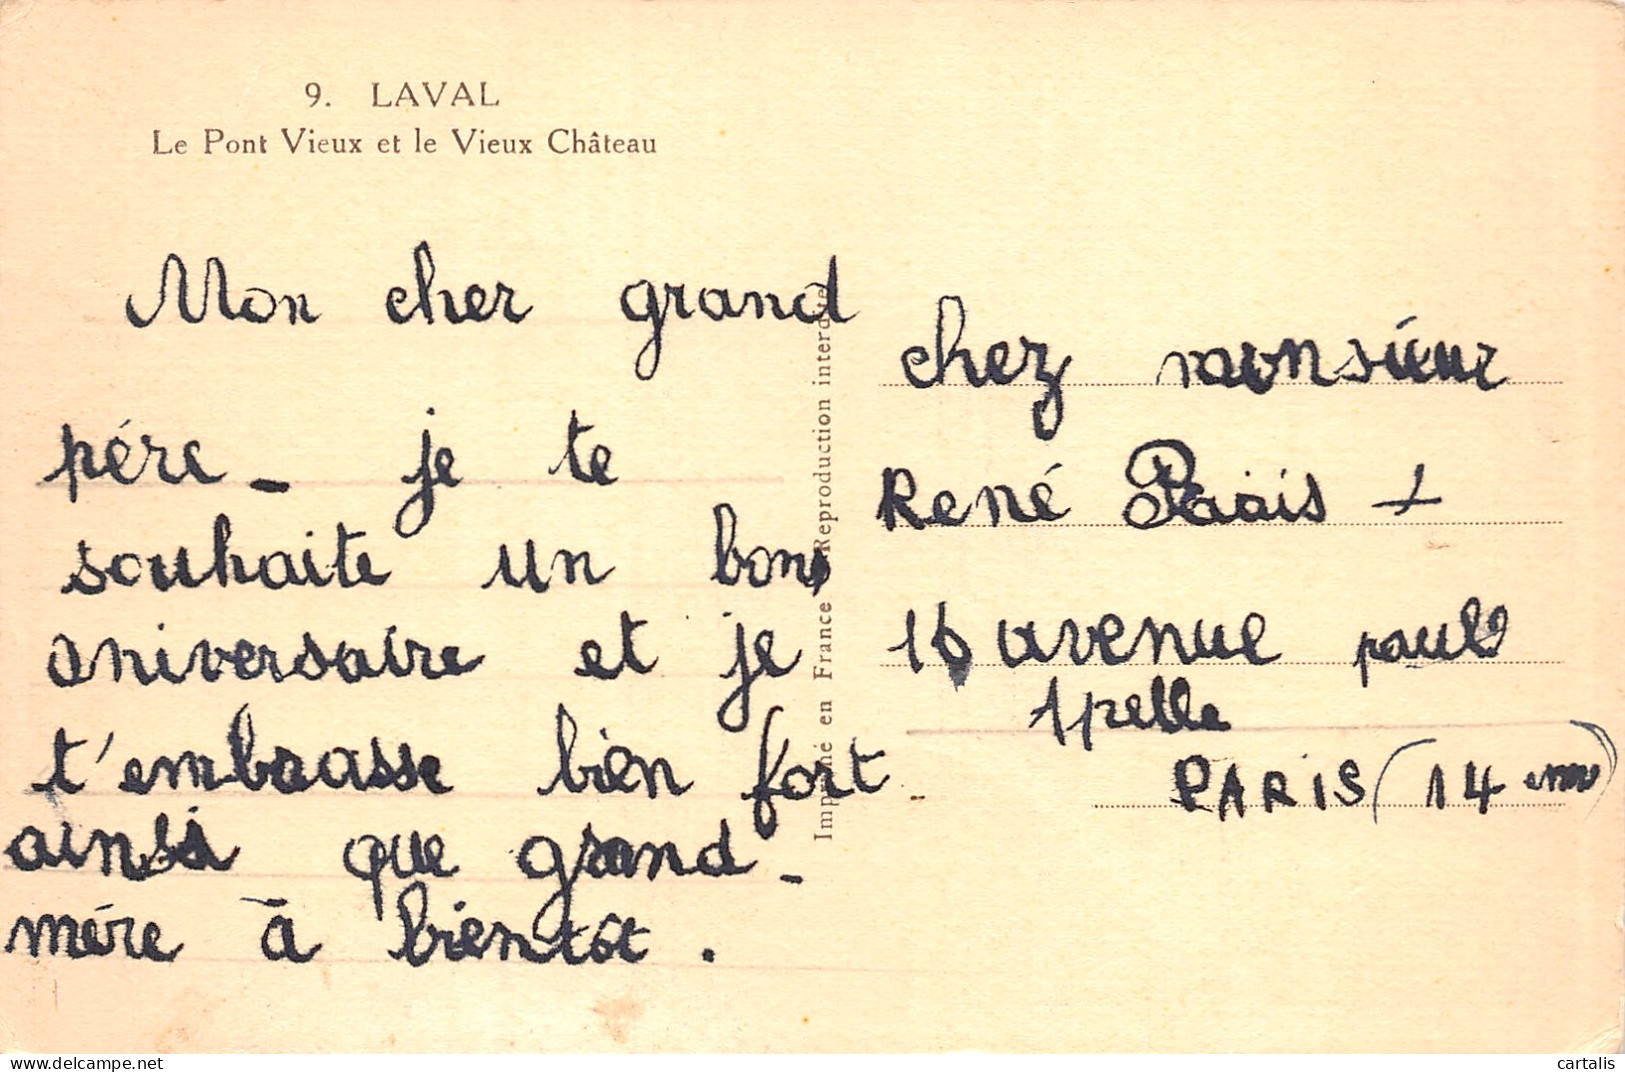 9. LAVAL
Le Pont Vieux et le Vieux Château
Mon cher grand
pére _ je te
souhaite un bon
aniversaire et je
t'embrasse bien fort
ainsi que grand _
mére à bientôt .
Imprimé en France Reproduction interdite
chez monsieur
René Paris +
16 avenue paul
Apelle
PARIS (14 eme)
cartalis